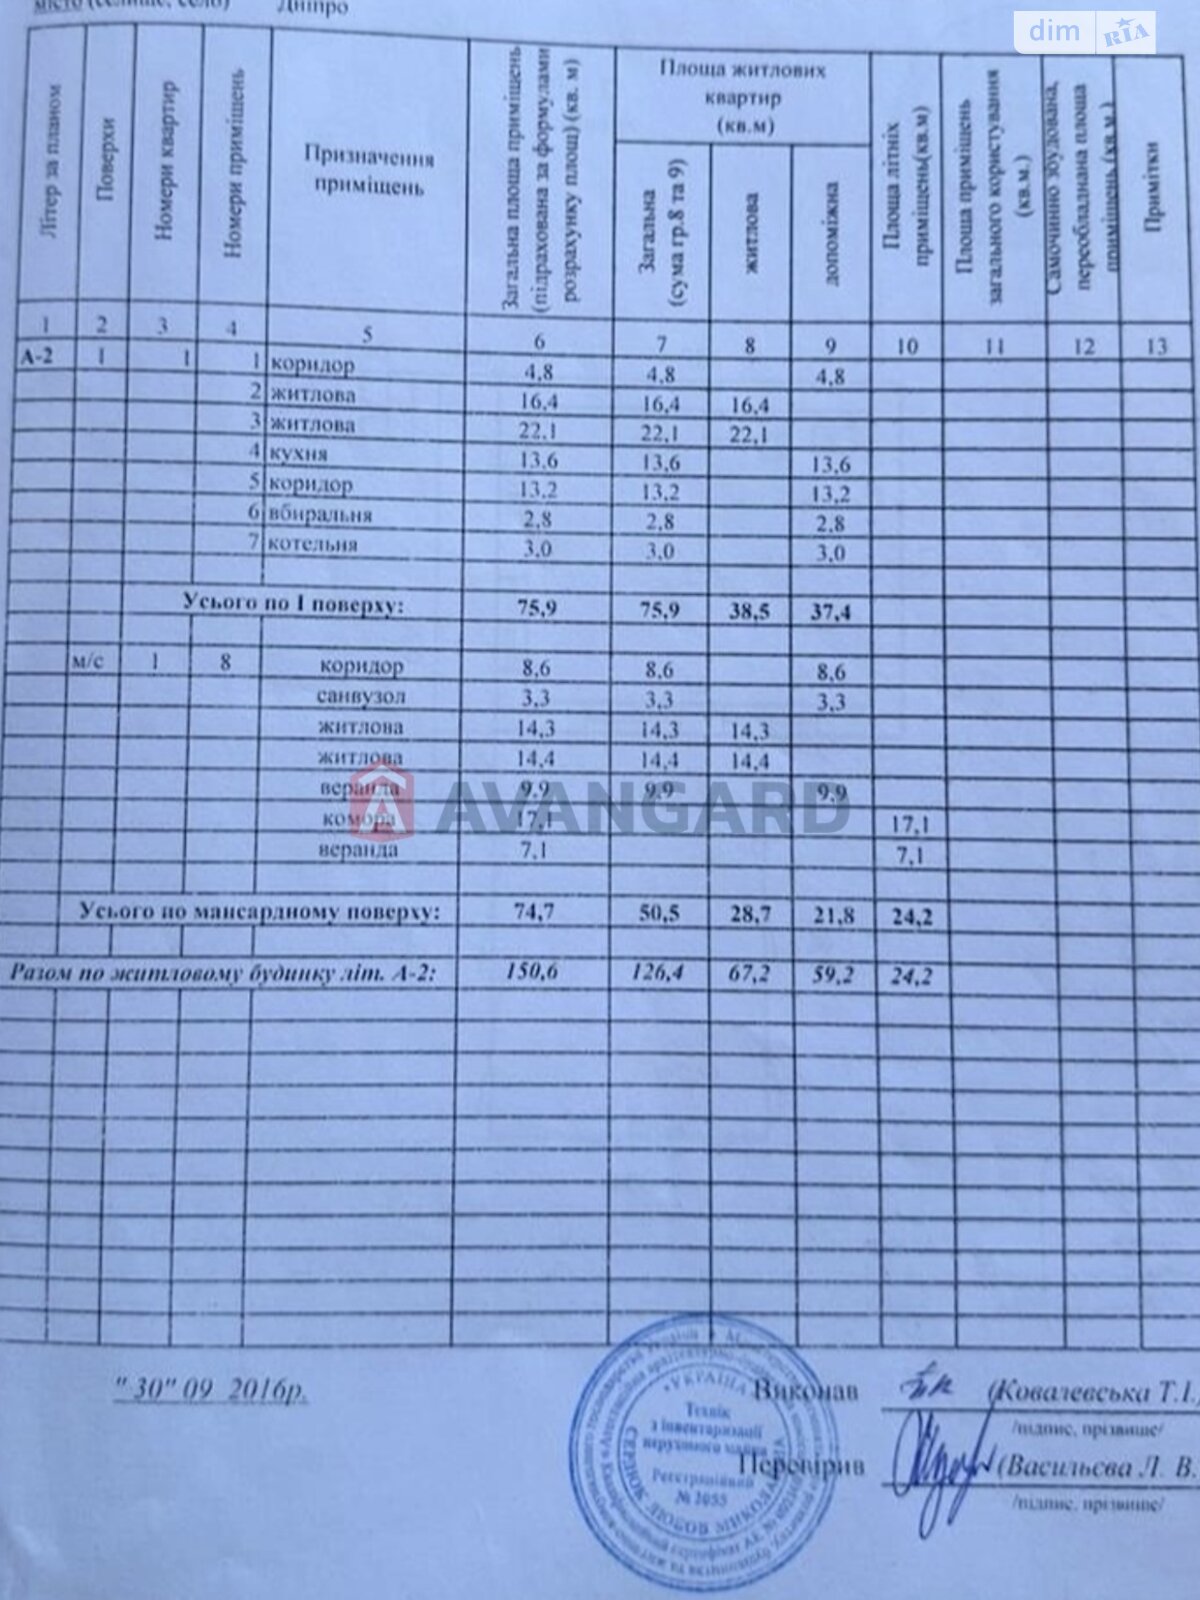 місто (селище, село) Дніпро
dim RIA
Літер за планом
Поверхи
Номери квартир
Номери приміщень
Призначення приміщень
Загальна площа приміщень (підрахована за формулами розрахунку площ) (кв. м)
Площа житлових квартир (кв.м)
Загальна (сума гр.8 та 9)
житлова
допоміжна
Площа літніх приміщень(кв.м)
Площа приміщень загального користування (кв.м.)
Самочинно збудована, переобладнана площа приміщень (кв.м.)
Примітки
1 2 3 4 5 6 7 8 9 10 11 12 13
А-2 1 1 1 коридор 4,8 4,8 4,8
2 житлова 16,4 16,4 16,4
3 житлова 22,1 22,1 22,1
4 кухня 13,6 13,6 13,6
5 коридор 13,2 13,2 13,2
6 вбиральня 2,8 2,8 2,8
7 котельня 3,0 3,0 3,0
Усього по І поверху: 75,9 75,9 38,5 37,4
м/с 1 8 коридор 8,6 8,6 8,6
санвузол 3,3 3,3 3,3
житлова 14,3 14,3 14,3
житлова 14,4 14,4 14,4
веранда 9,9 9,9 9,9
комора 17,1 17,1
веранда 7,1 7,1
AVANGARD
Усього по мансардному поверху: 74,7 50,5 28,7 21,8 24,2
Разом по житловому будинку літ. А-2: 150,6 126,4 67,2 59,2 24,2
"30" 09 2016р.
Виконав (Ковалевська Т.І.)
/підпис, прізвище/
Перевірив (Васильєва Л. В.
/підпис, прізвище/
УКРАЇНА
Технік
з інвентаризації
нерухомого майна
Реєстраційний
№ 1055
СЕРДЮК ЛЮБОВ МИКОЛАЇВНА